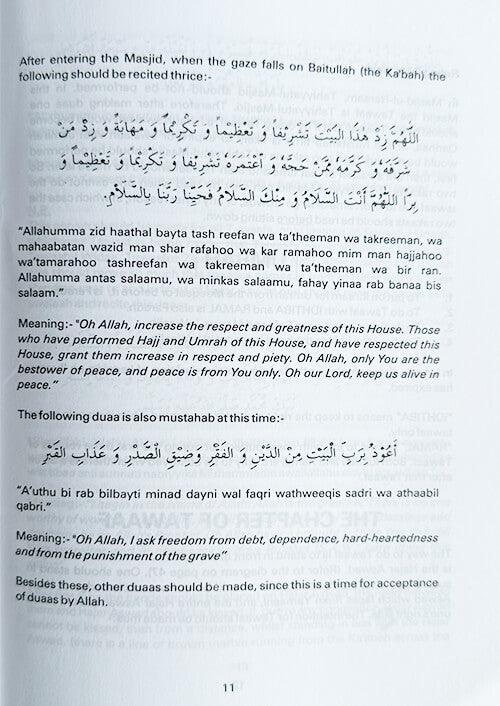 After entering the Masjid, when the gaze falls on Baitullah (the Ka'bah) the
following should be recited thrice:-
اَللّٰهُمَّ زِدْ هٰذَا الْبَيْتَ تَشْرِيْفاً وَ تَعْظِيْماً وَ تَكْرِيْماً وَ مَهَابَةً وَ زِدْ مَنْ
شَرَّفَهُ وَ كَرَّمَهُ مِمَّنْ حَجَّهُ وَ اعْتَمَرَهُ تَشْرِيْفاً وَ تَكْرِيْماً وَ تَعْظِيْماً وَ
بِرًّا اَللّٰهُمَّ أَنْتَ السَّلَامُ وَ مِنْكَ السَّلَامُ فَحَيِّنَا رَبَّنَا بِالسَّلَامِ.
"Allahumma zid haathal bayta tash reefan wa ta'theeman wa takreeman, wa
mahaabatan wazid man shar rafahoo wa kar ramahoo mim man hajjahoo
wa'tamarahoo tashreefan wa takreeman wa ta'theeman wa bir ran.
Allahumma antas salaamu, wa minkas salaamu, fahay yinaa rab banaa bis
salaam."
Meaning:- "Oh Allah, increase the respect and greatness of this House. Those
who have performed Hajj and Umrah of this House, and have respected this
House, grant them increase in respect and piety. Oh Allah, only You are the
bestower of peace, and peace is from You only. Oh our Lord, keep us alive in
peace."
The following duaa is also mustahab at this time:-
أَعُوْذُ بِرَبِّ الْبَيْتِ مِنَ الدَّيْنِ وَ الْفَقْرِ وَضِيْقِ الصَّدْرِ وَ عَذَابِ الْقَبْرِ
"A'uthu bi rab bilbayti minad dayni wal faqri wathweeqis sadri wa athaabil
qabri."
Meaning:- "Oh Allah, I ask freedom from debt, dependence, hard-heartedness
and from the punishment of the grave"
Besides these, other duaas should be made, since this is a time for acceptance
of duaas by Allah.
11